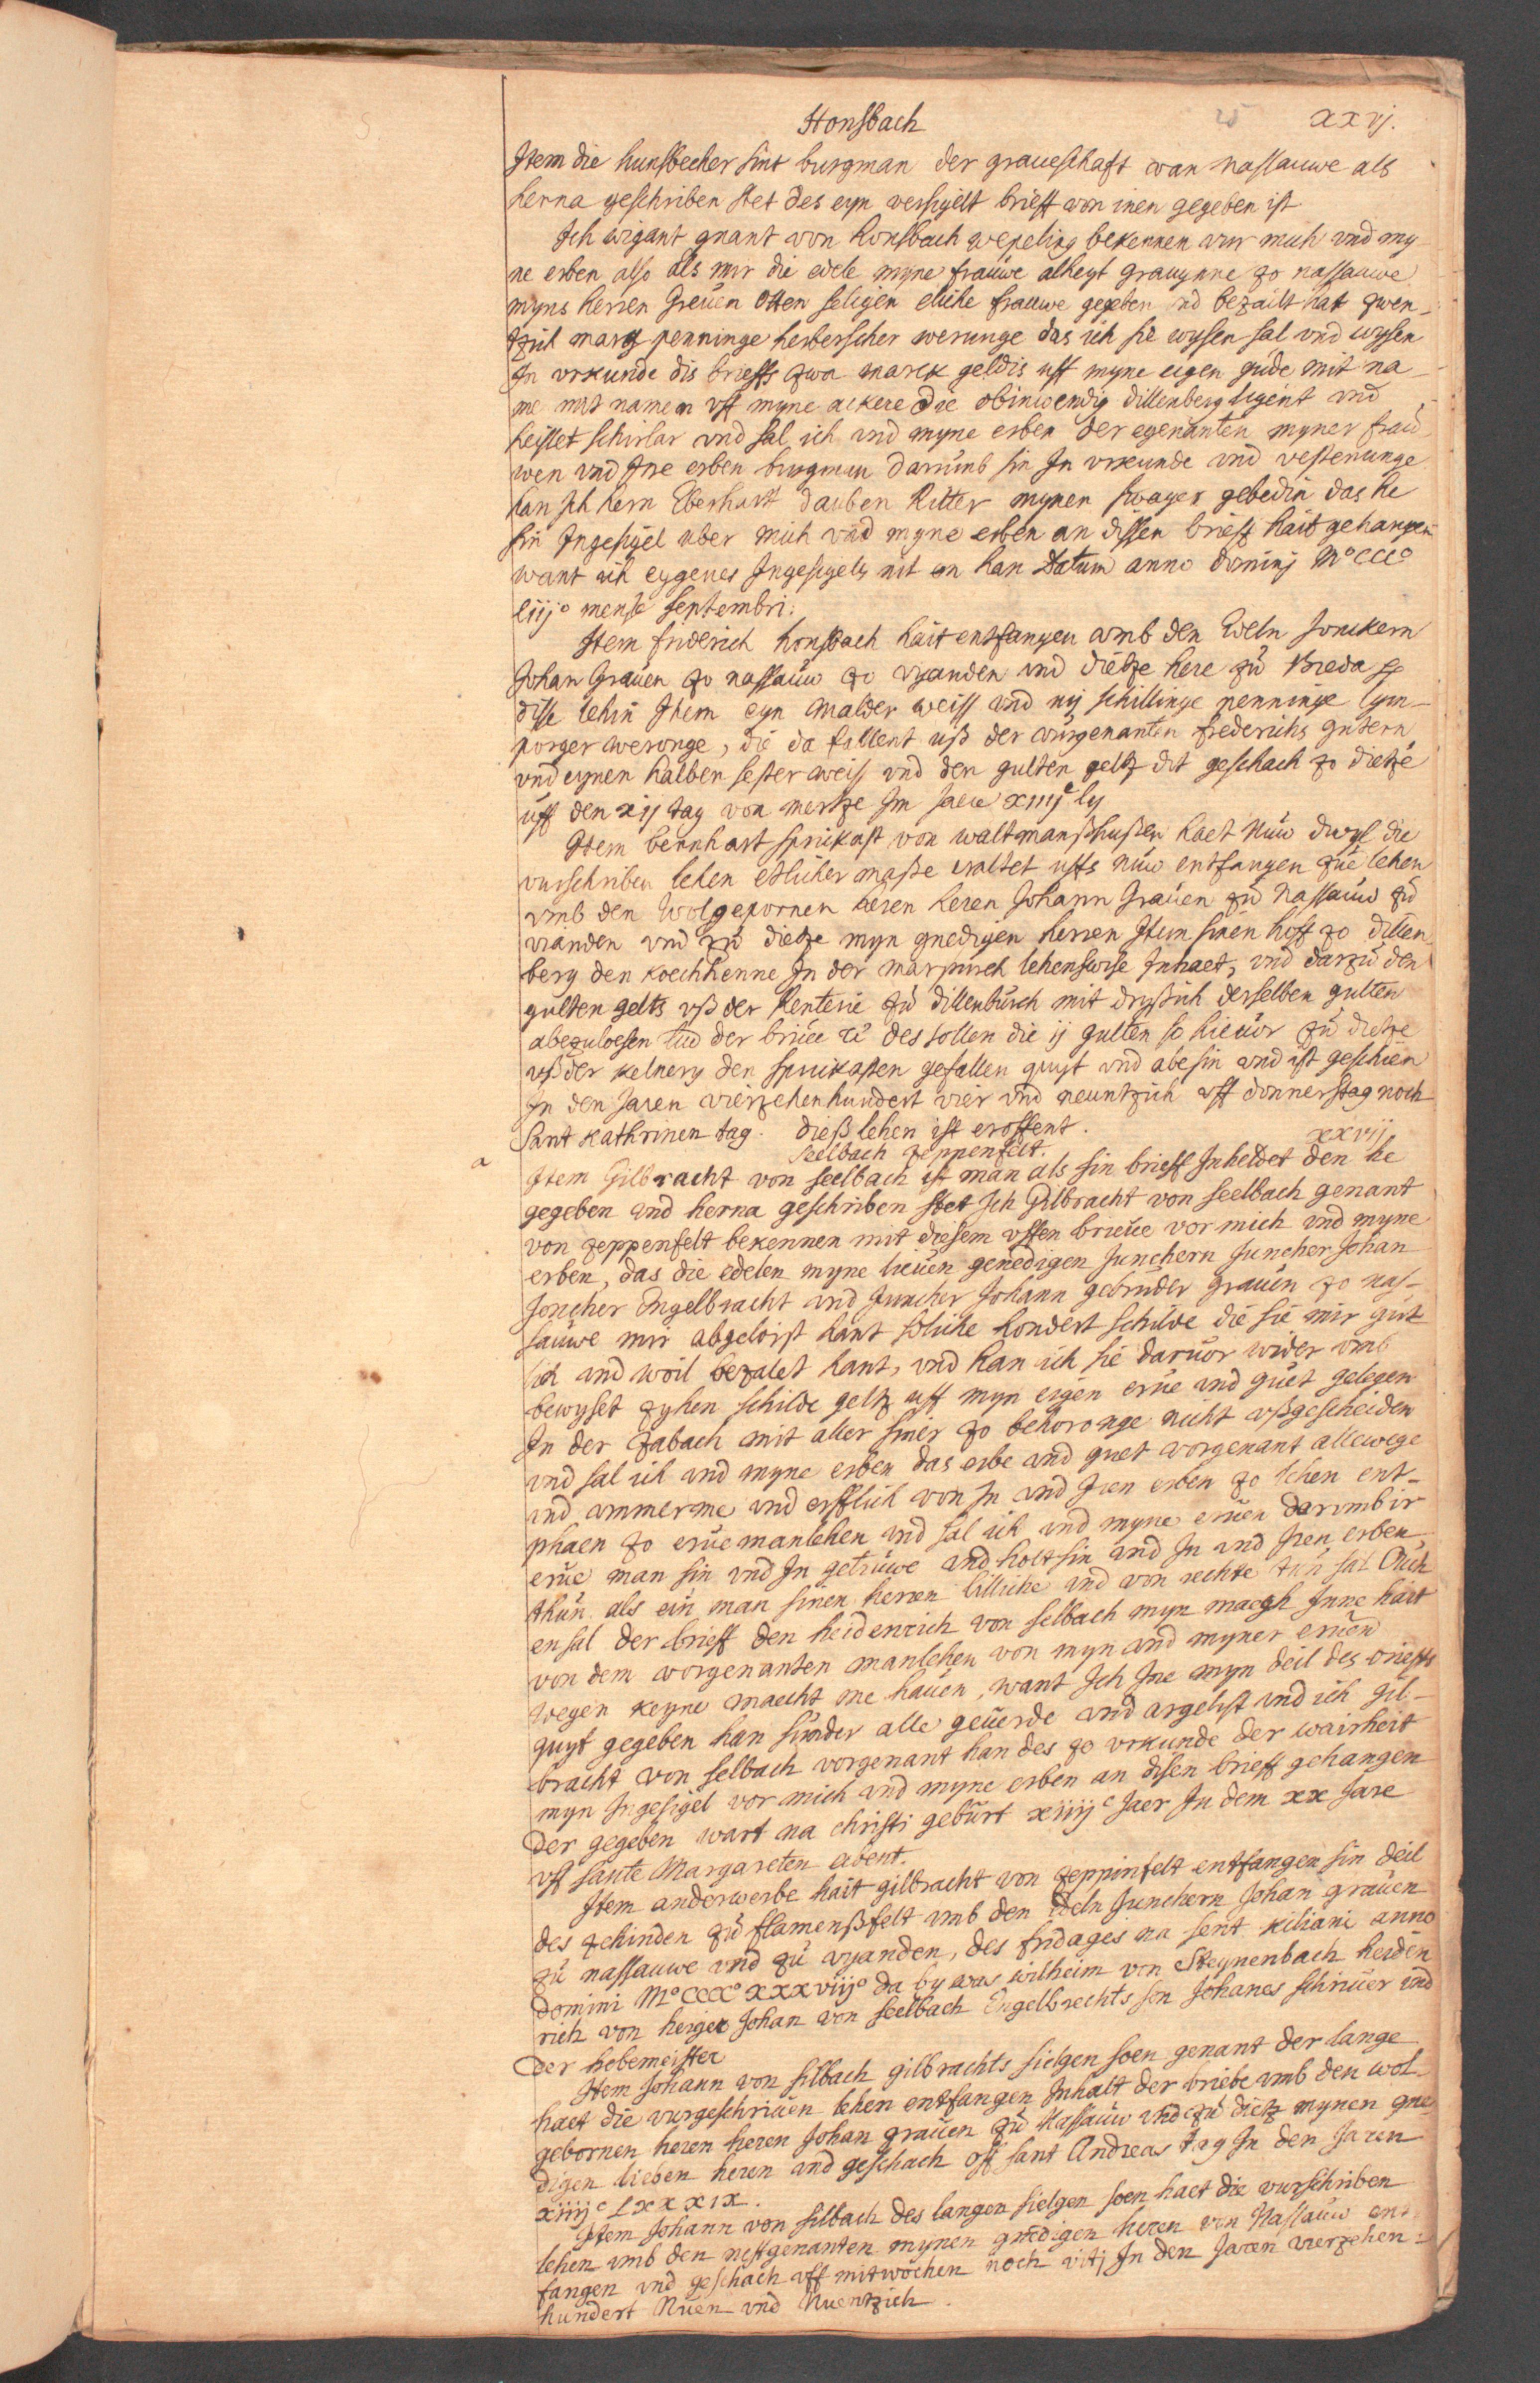 Honsbach 25 xxvj.
Item die hunsbecher sint burgman der graueschaft van nassauwe als
herna geschriben stet des eyn versigelt brieff von inen gegeben ist
Ich wigant gnant von honsbach wepeling bekennen vur mich vnd my
ne erben also als mir die edele myne frauwe alheyt grauynne zo nassauwe
myns herren Greuen Otten seligen eliche frauwe gegeben vnd bezailt hat zwen-
tzich marg penninge herberscher werunge das ich sie wysen sal vnd wysen
In vrkunde dis brieffs zwa marck geldis uff myne eigen gude mit na-
me mit namen vff myne ackere die obinwendig dillenberg ligent vnd
heisset schirlar vnd sal ich vnd myne erben der egenanten myner frau-
wen vnd Ire erben burgman darumb sin In vrkunde vnd vestenunge
han Ich hern Eberhart dauben Ritter mynen swager gebedin das he
sin Ingesigel uber mich vnd myne erben an dissen brieff hait gehangen
want ich eygenes Ingesigels nit en han Datum anno dominj M° ccc°
liij° mense septembri.
Item friderich honsbach hait entfangen vmb den Edeln Jonckern
Johan Grauen zo nassauw zo vyanden vnd dietze here zu Breda
disse lehin Item eyn malder weiss vnd nij schillinge penninge lym-
porger weronge, die da fallent uß der vurgenanten frederichs gutern
vnd eynen halben sester weiss vnd den gulten geltz dit geschach zo dietze
uff den xij tag von mertze Im Jaere xiiijc ly
Item bernhart spricast von waltmanßhußen haet Nuw dwyl die
vurschriben lehen etlicher maße eraltet uffs nuw entfangen zue lehen
vmb den Wolgepornen heren heren Johann Grauen zu Nassauw zu
vianden vnd zu dietze myn gnedigen herren Item sinen hoff zo dillen
berg den koechhenne In der marpurch lehenswise Inhaet, vnd darzu den
gulten gelts vß der Renterie zu dillenburch mit dryßich derselben gulten
abezuloesen lud der brieue des sollen die ij gulten so hieuor zu dietze
vß der kelnery den spricasten gefallen quyt vnd abesin vnd ist geschien
In den Jaren vierzehenhundert vier vnd neuntzich vff donnerstag noch
Sant kathrinen tag. dieß lehen ist eroffent.
Seelbach zeppenfelt. xxvij
a Item Gilbracht von seelbach ist man als sin brieff Inheldet den he
gegeben vnd herna geschriben stet Ich Gilbracht von seelbach genant
von zeppenfelt bekennen mit diesem uffen brieue vor mich vnd myne
erben, das die edelen myne lieuen genedigen Junchern Juncher Johan
Joncher Engelbracht vnd Juncher Johann gebruder grauen zo nas-
sauwe mir abgeloist hant soliche hondert schilde die sie mir gut-
lich vnd woil bezalet hant, vnd han ich sie daruor wider vmb
bewyset zyhen schilde geltz uff myn eigen erue vnd guet gelegen
In der zabach mit aller siner zo behoronge nicht vßgescheiden
vnd sal ich vnd myne erben das erbe vnd guet vorgenant allewege
vnd vmmerme vnd erfflich von In vnd Iren erben zo lehen ent-
phaen zo eruemanlehen vnd sal ich vnd myne eruen darumb ir
erue man sin vnd In getruwe vnd holt sin vnd In vnd Iren erben
thun als ein man sinen herren billiche vnd von rechte tun sal Auch
en sal der brieff den heidenrich von selbach myn maegh Inne hait
von dem vorgenanten manlehen von myn vnd myner eruen
wegen keyne macht me hauen, want Ich Ine myn deil des brieffs
quyt gegeben han sunder alle geuerde vnd argelist vnd ich gil-
bracht von selbach vorgenant han des zo vrkunde der wairheit
myn Ingesigel vor mich vnd myne erben an disen brieff gehangen
Der gegeben wart na christi geburt xiiijc Jaer In dem xx Jare
vff sante Margareten abent.
Item anderwerbe hait gilbracht von zeppinfelt entfangen sin deil
des zehinden zu flamenßfelt vmb den Edeln Junchern Johan grauen
zu nassauwe vnd zu vyanden, des fridages na sent kiliani anno
domini M° cccc° xxxviij° da by was wilheim von Steynenbach heiden
rich von heiger Johan von seelbach Engelbrechts son Johanes schriuer vnd
der hebemeister
Item Johann von selbach gilbrachts sielgen soen genant der lange
haet die vurgeschriuen lehen entfangen Inhalt der briebe vmb den wol-
gebornen heren heren Johan grauen zu Nassauw vnd zu dietz mynen gne
digen lieben heren vnd geschach vff sant Andreas tag In den Jaren
xiiijc Lxxxix.
Item Johann von selbach des langen sielgen soen haet die vurschriben
lehen vmb den nestgenanten mynen gnedigen heren von Nassauw ent
fangen vnd geschach vff mitwochen noch viti In den Jaren vierzehen-
hundert Nuen vnd Nuentzich.